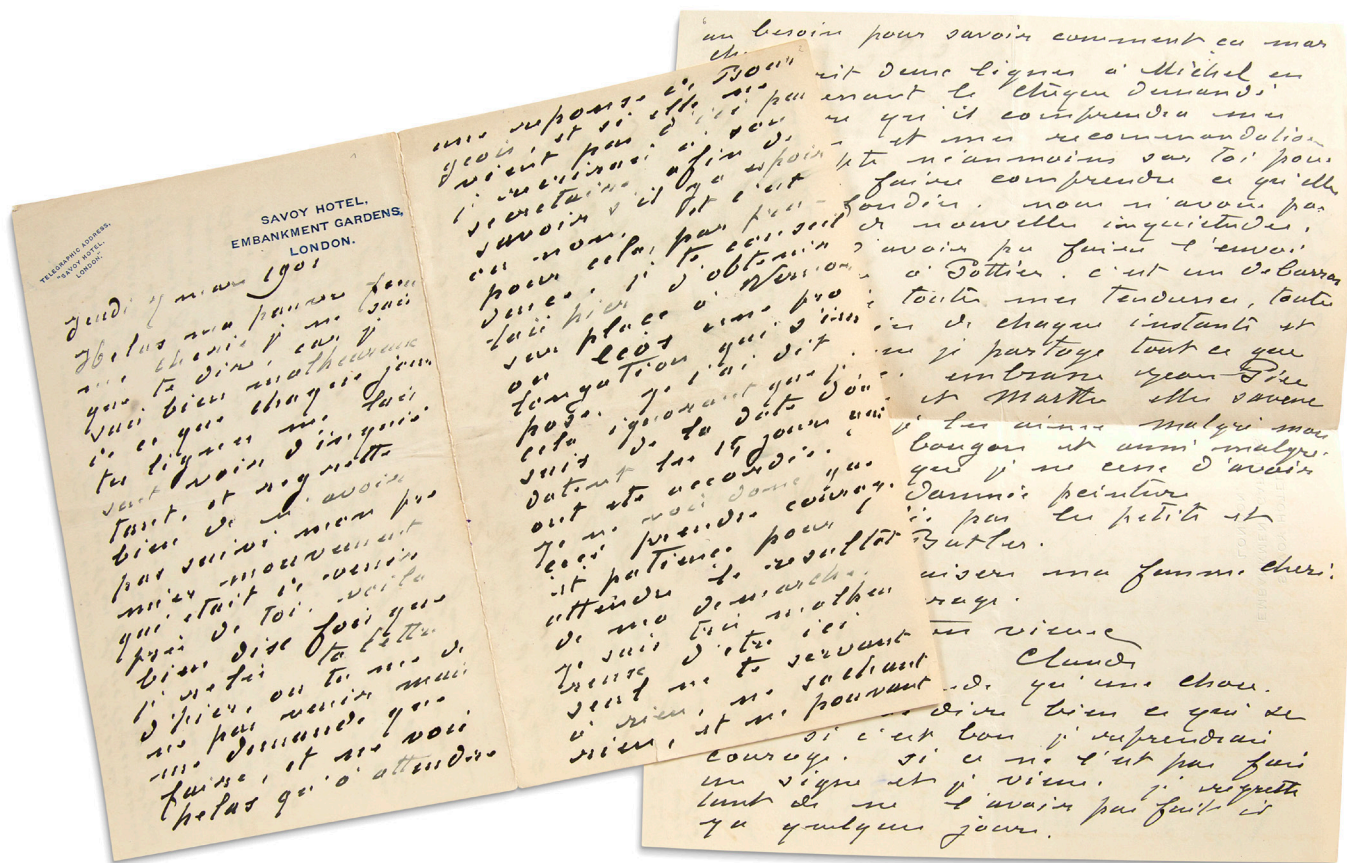 TELEGRAPHIC ADDRESS,
"SAVOY HOTEL,
LONDON."
SAVOY HOTEL,
EMBANKMENT GARDENS,
LONDON.
Jeudi 7 mars 1901
Helas ma pauvre fem
me cherie je ne sais
que te dire, car je
suis bien malheureux
de ce que chaque jour
tes lignes me lais
sent voir d'inquie
tant, et regrette
bien de n'avoir
pas suivi mon pre
mier mouvement
qui était de venir
près de toi. voila
bien dix fois que
je relis ta lettre
d'hier, ou tu me dis
ne pas venir mais
me demande que
faire, et ne vois
helas qu'à attendre
2
une reponse de Bour
geois, et si elle ne
vient pas d'ici peu
je recrirai à son
secretaire afin de
savoir s'il y a espoir
ou non. et c'est
pour cela, par pru
dence, je te conseil
lais hier d'obtenir
sur place à
ou une pro
longation qui s'im
pose. je t'ai dit
cela ignorant que je
suis de la date d'où
datent les 15 jours qui
ont ete accordés.
Je ne vois donc que
ceci prendre courage
et patience pour
attendre le resultat
de ma demarche.
Je suis très malheu
reux d'etre ici
seul ne te servant
à rien, ne sachant
rien, et ne pouvant
6
au besoin pour savoir comment ca mar
che
rit deux lignes à Michel en
le chèque demandé
re qu'il comprendra mes
et mes recommandation
pte néanmoins sur toi pour
faire comprendre ce qu'elle
nous n'avons pas
de nouvelle inquietudes.
d'avoir pu faire l'envoi
à Pottier. c'est un debarras
toutes mes tendresses, toute
de chaque instants et
je partage tout ce que
embrasse Jean-Pierre
et Marthe elle savent
je les aime malgré mon
bougon et aussi malgré
que je ne cesse d'avoir
damnée peinture
par les petits et
Butler.
aisers ma femme cheri.
rage.
ton vieux
Claude
de qu'une chose.
dire bien ce qui se
si c'est bon je reprendrai
courage. si ce ne l'est pas fais
un signe et je viens. je regrette
tant de ne l'avoir pas fait il
y a quelques jours.